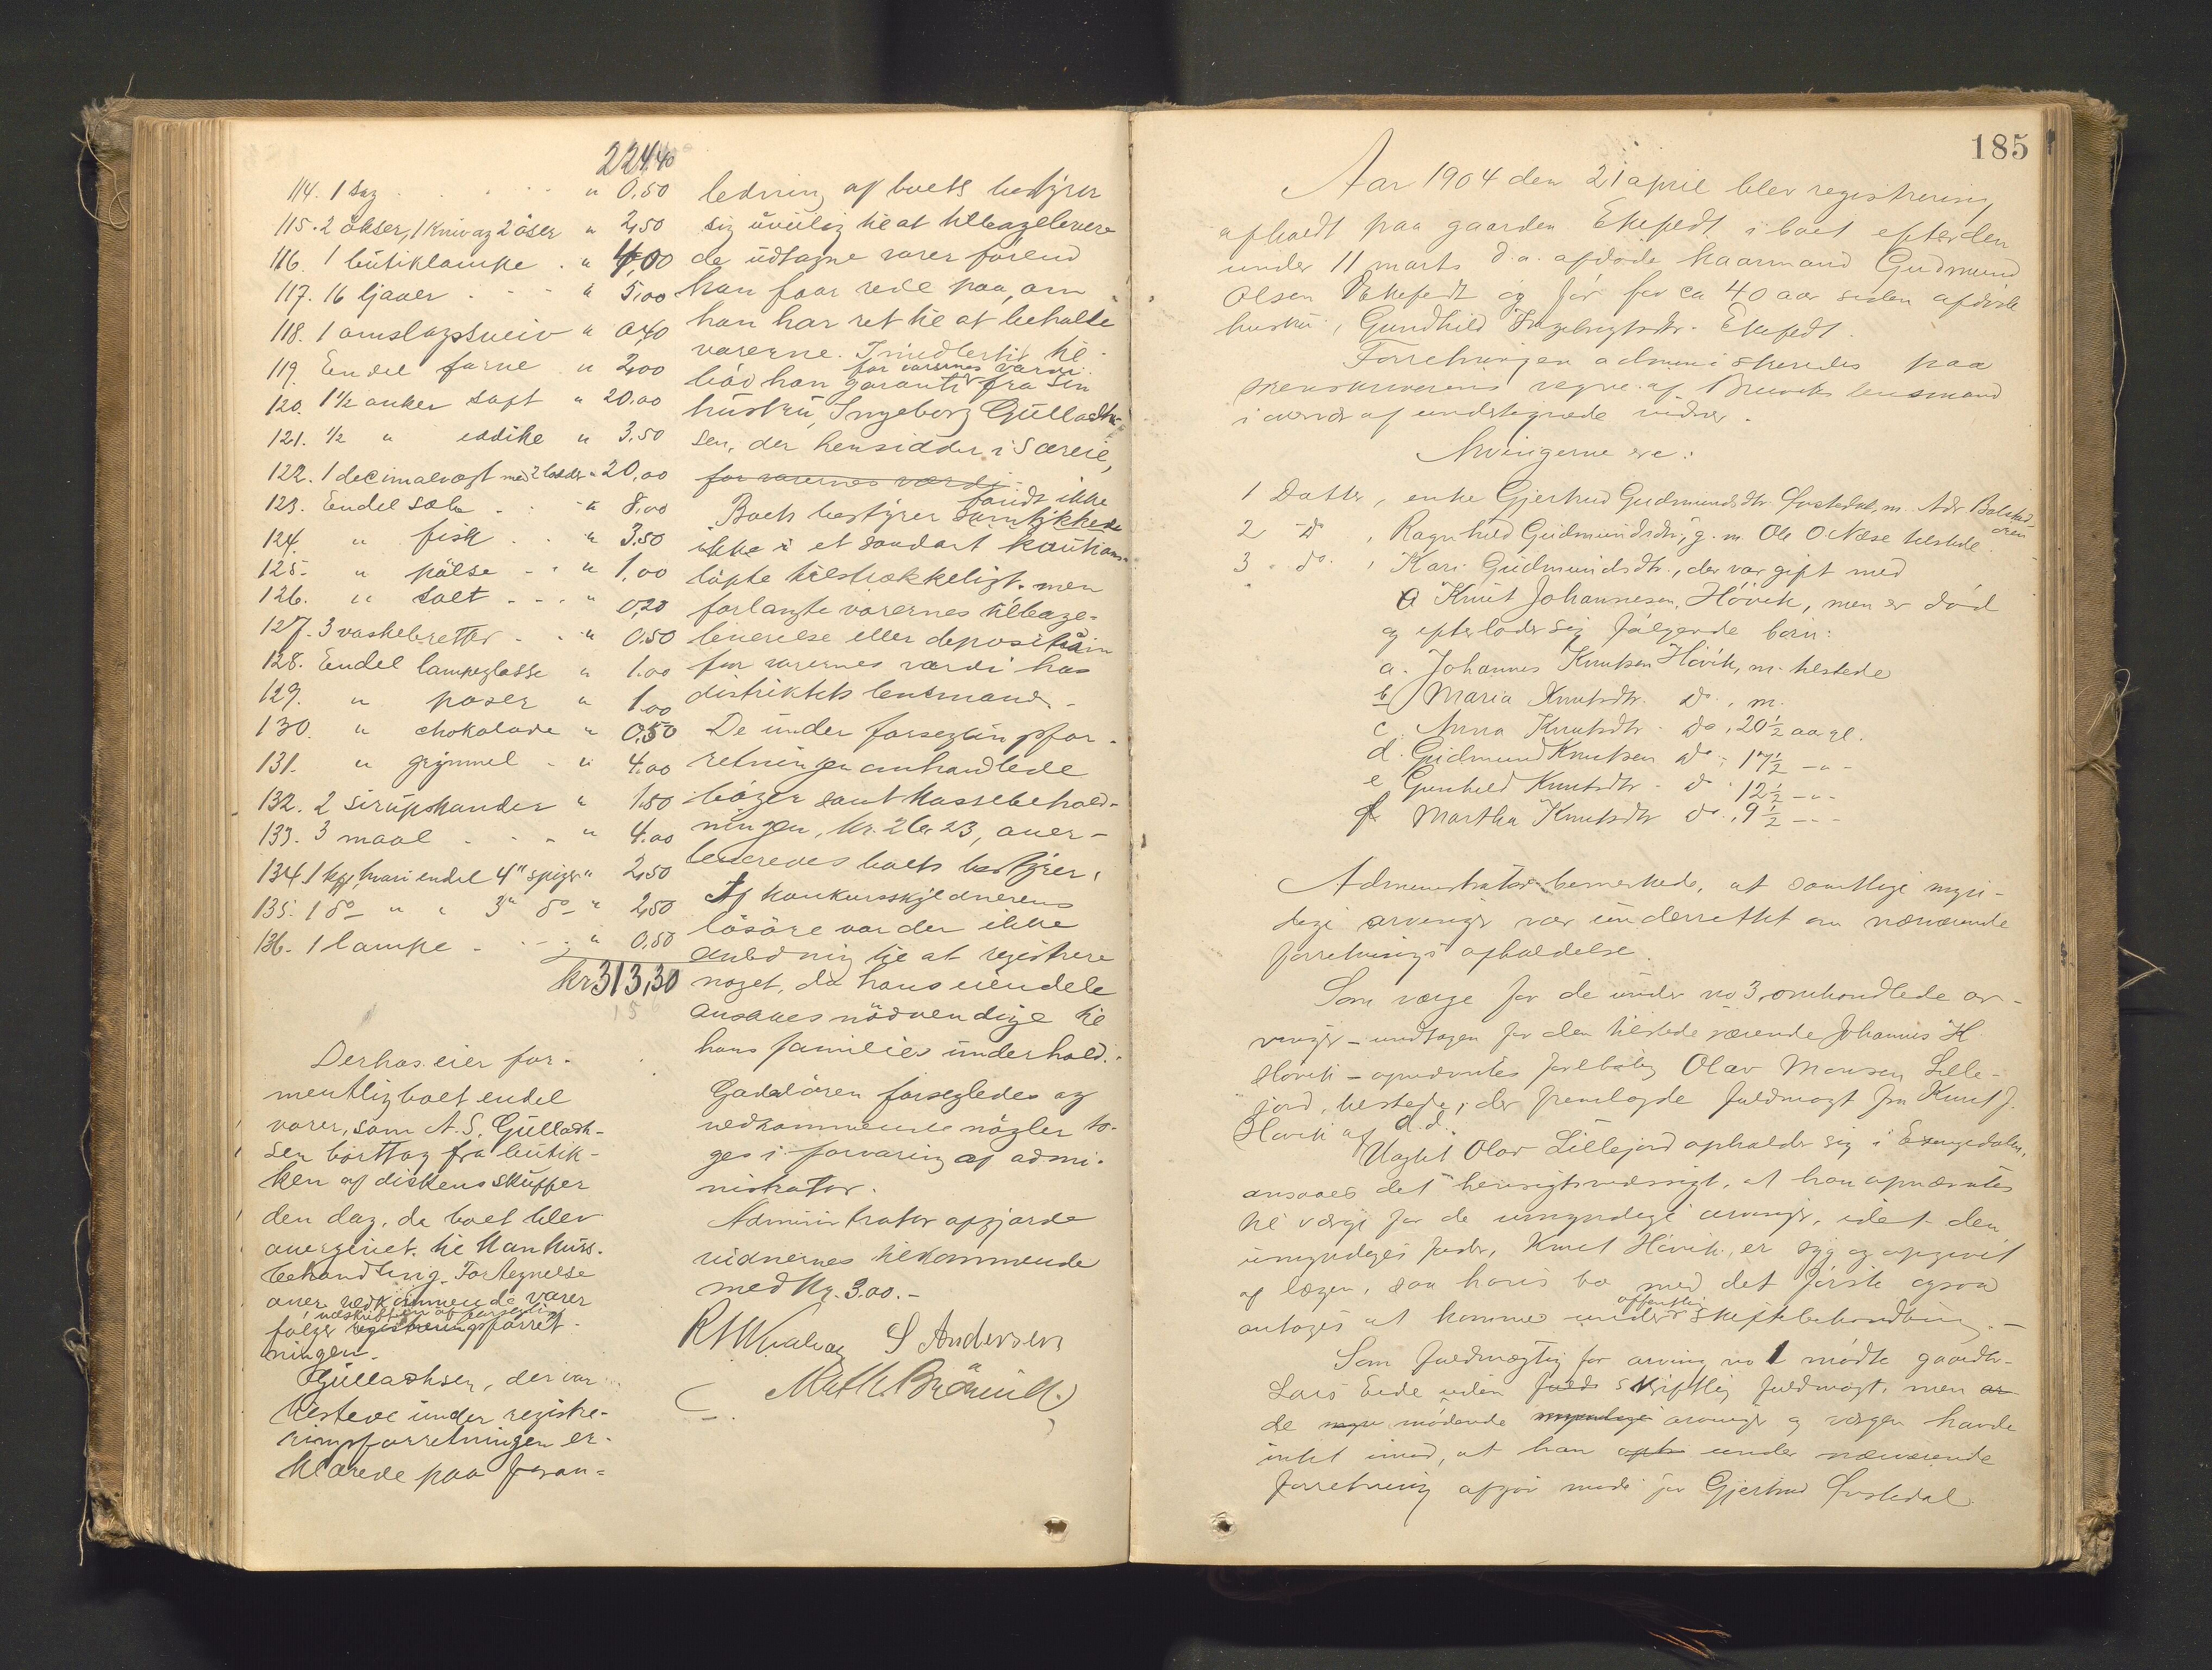 224,40
114. 1 sag . . . . " 0,50
115. 2 økser, 1 kniv og 2 øser " 2,50
116. 1 butiklampe . " 4,00
117. 16 ljaaer . . - " 5,00
118. 1 omslagssveiv " 0,40
119. Endel farve " 2,00
120. 1 1/2 anker saft " 20,00
121. 1/2 " eddike " 3,50
122. 1 decimalvægt med 2 lodder " 20,00
123. Endel sæbe . . " 8,00
124. " fisk . . " 3,50
125. " pølse - . " 1,00
126. " salt - - . " 0,20
127. 3 vaskebretter - . " 0.50
128. Endel lampeglasse " 1.00
129. " poser " 1,00
130. " chokolade " 0,50
131. " grynmel - " 4.00
132. 2 sirupskander " 1.50
133. 3 maal . . - " 4.00
134. 1 kgg hvori endel 4" spiger " 2,50
135. 1 do - " " 3" do - " 2,50
136. 1 lampe - . - . " 0.50
kr 313,30
Derhos eier for-
mentlig boet endel
varer, som A. S. Gullach-
sen borttog fra butik-
ken af diskens skuffer
den dag, da boet blev
overgivet til konkurs-
behandling. Fortegnelse
over vedkommende varer
i udskriften af forseglin
følger registreringsforret-
ningen.
Gullachsen, der var
tilstede under registre-
ringsforretningen er-
klærede paa foran-
ledning af boets bestyrer
sig uvillig til at tilbagelevere
de udtagne varer førend
han faar rede paa, om
han har ret til at beholde
varerne. Imidlertid til-
for varernes værdi
bød han garanti fra sin
hustru, Ingeborg Gullach-
sen, der hensidder i særeie,
for varernes værdi
fandt ikke
Boets bestyrer samtykkede
ikke i et saadant kautions-
løfte tilstrækkeligt. men
forlangte varernes tilbage-
leverelse eller deposition
for varernes værdi hos
distriktets lensmand. -
De under forseglingsfor-
retningen omhandlede
bøger samt kassebehold-
ningen, kr. 26,23, over-
leveredes boets bestyrer.
Af konkursskyldnerens
løsøre var der ikke
anledning til at registrere
noget, da hans eiendele
ansaaes nødvendige til
hans families underhold.
Gadedøren forsegledes og
vedkommende nøgler to-
ges i forvaring af admi-
nistrator.
Administrator opgjorde
vidnernes tilkommende
med kr. 3.00. -
S Andersen
185
Aar 1904 den 21 april blev registrering
afholdt paa gaarden Ekefedt i boet efter den
under 11 marts d. a. afdøde kaarmand Gudmund
Olsen Ekefedt og for for ca 40 aar siden afdøde
hustru, Gundhild Ingebrigtsdtr. Ekefedt.
Forretningen administreredes paa
skriverens vegne af Bruviks lensmand
i nærvær af undertegnede vidner.
Arvingerne ere:
1 Datter, enke Gjertrud Gudmundsdtr. Øvstedal, m. Adr Bolstad-
øren
2 do , Ragnhild Gudmundsdtr, g. m. Ole O Næse tilstede
3 . do. , Kari Gudmundsdtr., der var gift med
Knut Johannesen Høvik, men er død
og efterlader sig følgende børn:
a. Johannes Knutsen Høvik, m. tilstede
b Maria Knutsdtr. do , m.
c. Anna Knutsdtr. do , 20 1/2 aar gl.
d. Gudmund Knutsen do , 17 1/2 - " -
e Gunhild Knutsdtr. do 12 1/2 - " -
f Martha Knutsdtr do , 9 1/2 - " -
Administrator bemerkede, at samtlige myn-
dige arvinger var underrettet om nærværende
forretnings afholdelse.
Som værge for de under no 3 omhandlede ar-
vinger – undtagen for den tilstede værende Johannes K
Høvik – opnævntes Olav Monsen Lille-
jord, tilstede, der fremlagde fuldmagt fra Knut J.
Høvik af d. d.
Uagtet Olav Lillejord opholder sig i Exingedalen,
ansaaes det hensigtsmæssigt, at han opnævntes
til værge for de umyndige arvinger, idet den
umyndiges fader, Knut Høvik, er syg og opgivet
af lægen, saa hans bo med det første ogsaa
offentlig
antages at komme under skiftebehandling. -
Som fuldmægtig for arving no 1 mødte gaardbr.
Lars Eide uden fuld skriftlig fuldmagt, men ar
de myn mødende myndige arvinger og værgen havde
intet imod, at han under nærværende
forretning afgjør møde for Gjertrud Øvstedal.